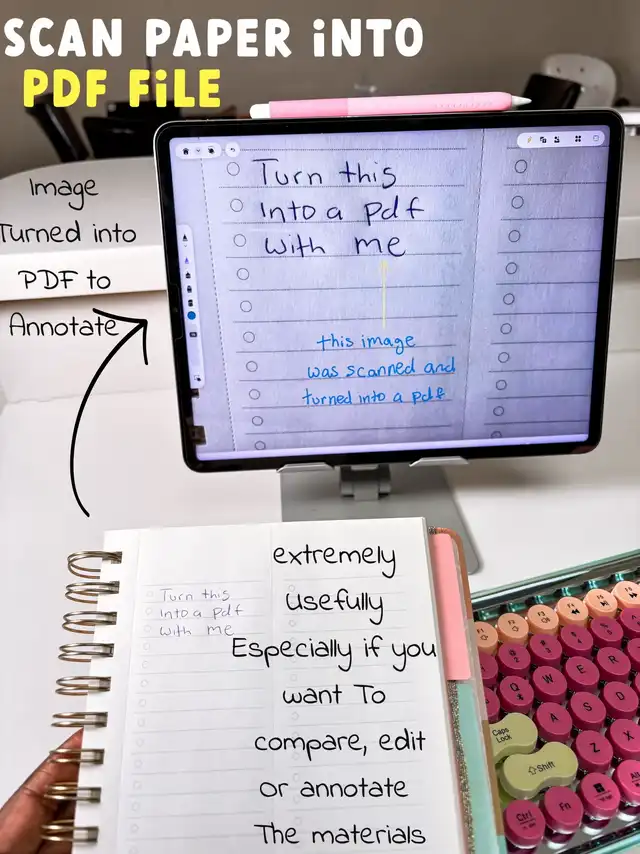 SCAN PAPER iNTO
PDF FiLE
Image
Turned into
PDF to
Annotate
Turn this
Into a pdf
with me
this image
was scanned and
turned into a pdf
extremely
Usefully
Especially if you
want To
compare, edit
Or annotate
The materials
Turn this
Into a pdf
with me
F1
F2
F3
F4
F5
F6
Q
W
E
R
A
S
D
Caps
Lock
Z
X
Shift
Ctrl
Fn
Alt